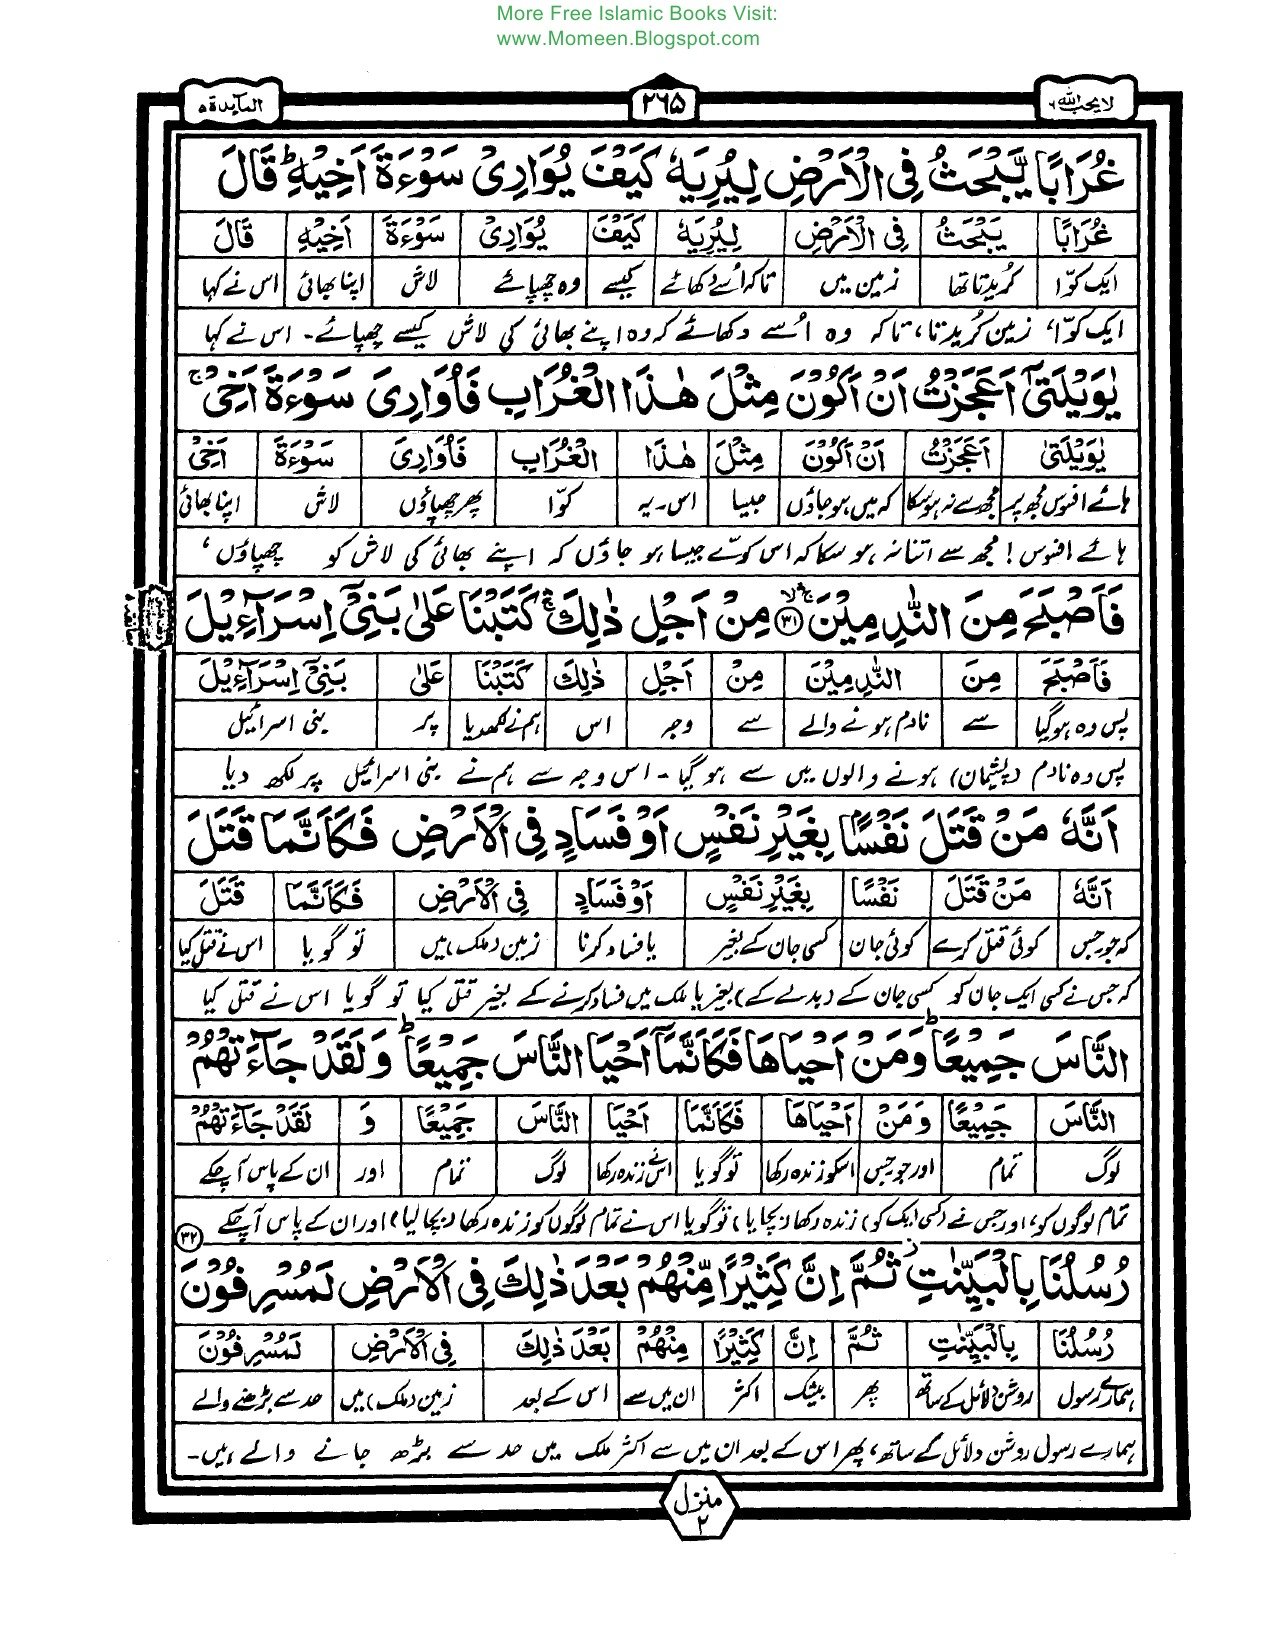 More Free Islamic Books Visit:
www.Momeen.Blogspot.com
لا یحب الله ۶
۲۶۵
المآئدة ۵
غُرَابًا يَّبْحَثُ فِي الْاَرْضِ لِيُرِيَهٗ كَيْفَ يُوَارِيْ سَوْءَةَ اَخِيْهِ ؕ قَالَ
غُرَابًا يَبْحَثُ فِي الْاَرْضِ لِيُرِيَهٗ كَيْفَ يُوَارِيْ سَوْءَةَ اَخِيْهِ قَالَ
ایک کوّا کُریدتا تھا زمین میں تاکہ اُسے دکھائے کیسے وہ چھپائے لاش اپنا بھائی اس نے کہا
ایک کوّا، زمین کُریدتا، تاکہ وہ اُسے دکھائے کہ وہ اپنے بھائی کی لاش کیسے چھپائے۔ اس نے کہا
يٰوَيْلَتٰۤى اَعَجَزْتُ اَنْ اَكُوْنَ مِثْلَ هٰذَا الْغُرَابِ فَاُوَارِيَ سَوْءَةَ اَخِيْ ۚ
يٰوَيْلَتٰى اَعَجَزْتُ اَنْ اَكُوْنَ مِثْلَ هٰذَا الْغُرَابِ فَاُوَارِيَ سَوْءَةَ اَخِيْ
ہائے افسوس مجھ پر مجھ سے نہ ہو سکا کہ میں ہو جاؤں جیسا اس۔یہ کوّا پھر چھپاؤں لاش اپنا بھائی
ہائے افسوس! مجھ سے اتنا نہ ہو سکا کہ اس کوّے جیسا ہو جاؤں کہ اپنے بھائی کی لاش کو چھپاؤں،
فَاَصْبَحَ مِنَ النّٰدِمِيْنَ ۳۱ مِنْ اَجْلِ ذٰلِكَ كَتَبْنَا عَلٰى بَنِيْۤ اِسْرَآءِيْلَ
فَاَصْبَحَ مِنَ النّٰدِمِيْنَ مِنْ اَجْلِ ذٰلِكَ كَتَبْنَا عَلٰى بَنِيْۤ اِسْرَآءِيْلَ
پس وہ ہوگیا سے نادم ہونے والے سے وجہ اس ہم نے لکھدیا پر بنی اسرائیل
پس وہ نادم (پشیمان) ہونے والوں میں سے ہو گیا۔ اس وجہ سے ہم نے بنی اسرائیل پر لکھ دیا
اَنَّهٗ مَنْ قَتَلَ نَفْسًۢا بِغَيْرِ نَفْسٍ اَوْ فَسَادٍ فِي الْاَرْضِ فَكَاَنَّمَا قَتَلَ
اَنَّهٗ مَنْ قَتَلَ نَفْسًا بِغَيْرِ نَفْسٍ اَوْ فَسَادٍ فِي الْاَرْضِ فَكَاَنَّمَا قَتَلَ
کہ جو جس کوئی قتل کرے کوئی جان کسی جان کے بغیر یا فساد کرنا زمین (ملک) میں تو گویا اس نے قتل کیا
کہ جس نے کسی ایک جان کو کسی جان کے (بدلے کے) بغیر یا ملک میں فساد کرنے کے بغیر قتل کیا تو گویا اس نے قتل کیا
النَّاسَ جَمِيْعًا ؕ وَمَنْ اَحْيَاهَا فَكَاَنَّمَاۤ اَحْيَا النَّاسَ جَمِيْعًا ؕ وَلَقَدْ جَآءَتْهُمْ
النَّاسَ جَمِيْعًا وَمَنْ اَحْيَاهَا فَكَاَنَّمَا اَحْيَا النَّاسَ جَمِيْعًا وَ لَقَدْ جَآءَتْهُمْ
لوگ تمام اور جو جس اسکو زندہ رکھا تو گویا اسنے زندہ رکھا لوگ تمام اور ان کے پاس آ چکے
تمام لوگوں کو، اور جس نے (کسی ایک کو) زندہ رکھا (بچایا) تو گویا اس نے تمام لوگوں کو زندہ رکھا (بچا لیا) اور ان کے پاس آ چکے
۳۲
رُسُلُنَا بِالْبَيِّنٰتِ ؗ ثُمَّ اِنَّ كَثِيْرًا مِّنْهُمْ بَعْدَ ذٰلِكَ فِي الْاَرْضِ لَمُسْرِفُوْنَ
رُسُلُنَا بِالْبَيِّنٰتِ ثُمَّ اِنَّ كَثِيْرًا مِنْهُمْ بَعْدَ ذٰلِكَ فِي الْاَرْضِ لَمُسْرِفُوْنَ
ہمارے رسول روشن دلائل کے ساتھ پھر بیشک اکثر ان میں سے اس کے بعد زمین (ملک) میں حد سے بڑھنے والے
ہمارے رسول روشن دلائل کے ساتھ، پھر اس کے بعد ان میں سے اکثر ملک میں حد سے بڑھ جانے والے ہیں۔
منزل
۲